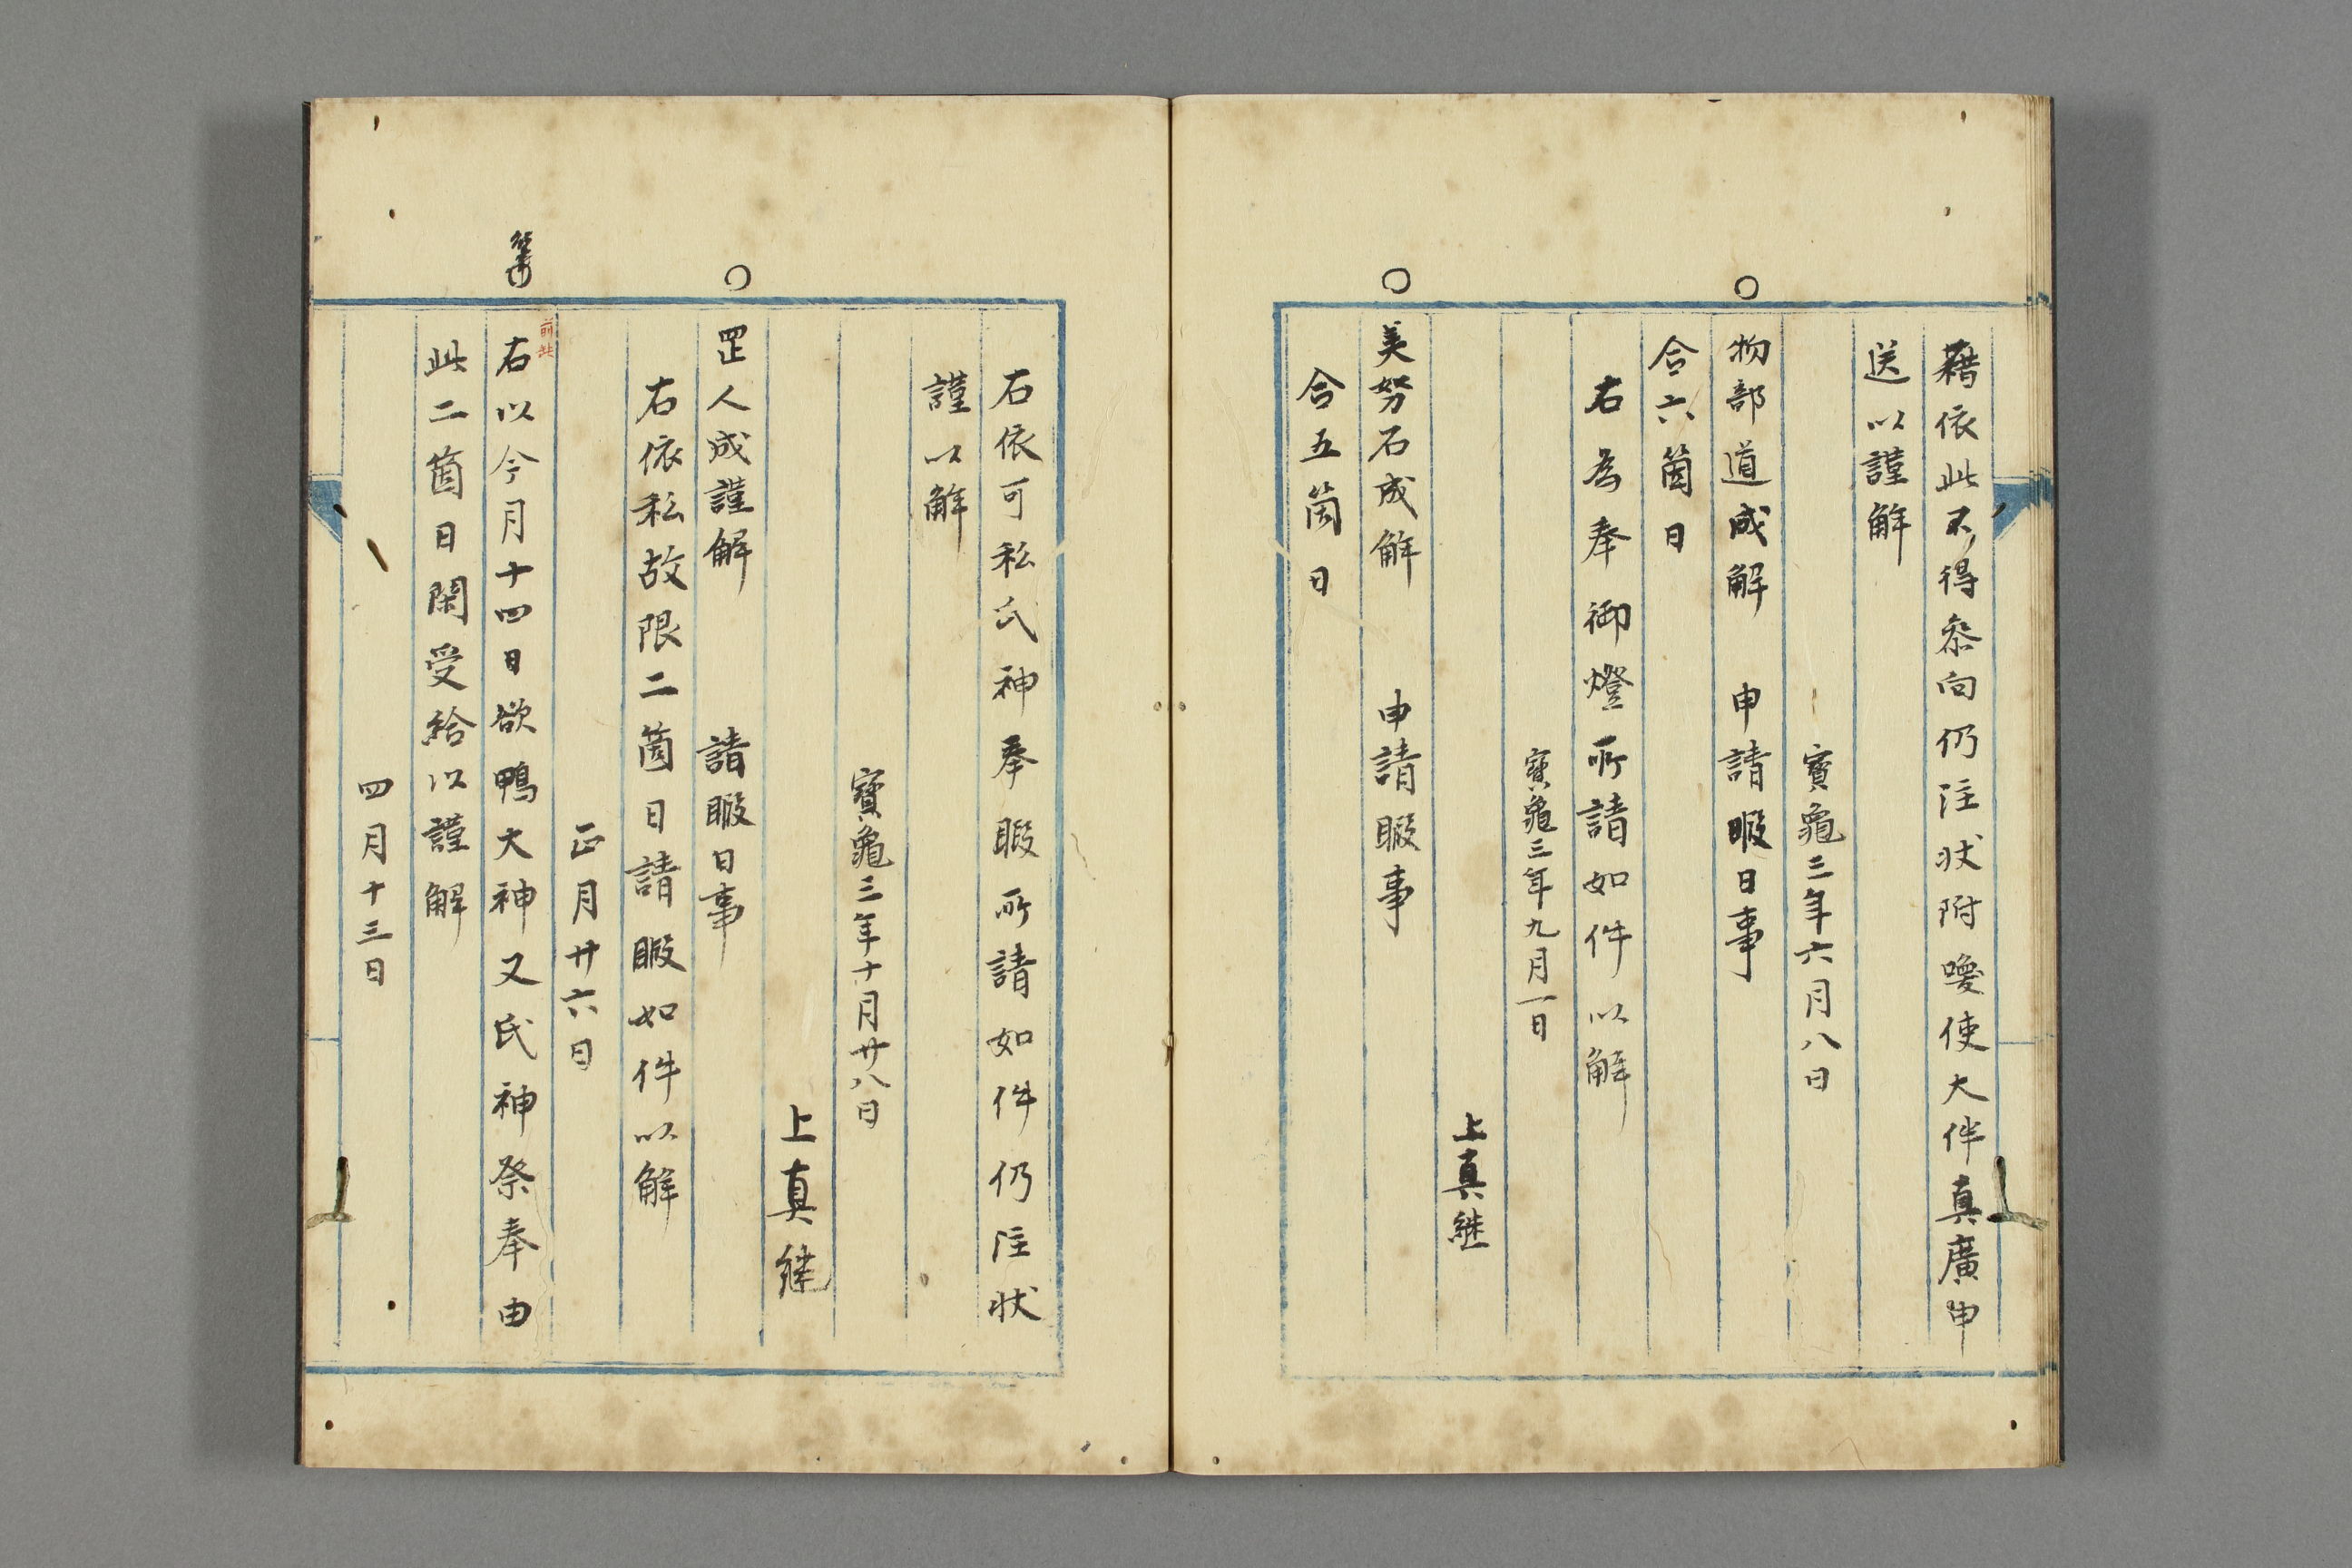 藉依此不得参向仍注状附喚使大伴真廣申
送以謹解
寳龜三年六月八日
物部道成解　申請暇日事
合六箇日
右為奉御燈所請如件以解
寳龜三年九月一日
上真継
美努石成解　申請暇事
合五箇日
右依可私氏神奉暇所請如件仍注状
謹以解
寳龜三年十月廿八日
上真継
罡人成謹解　請暇日事
右依私故限二箇日請暇如件以解
正月廿六日
右以今月十四日欲鴨大神又氏神祭奉由
此二箇日閑受給以謹解
四月十三日